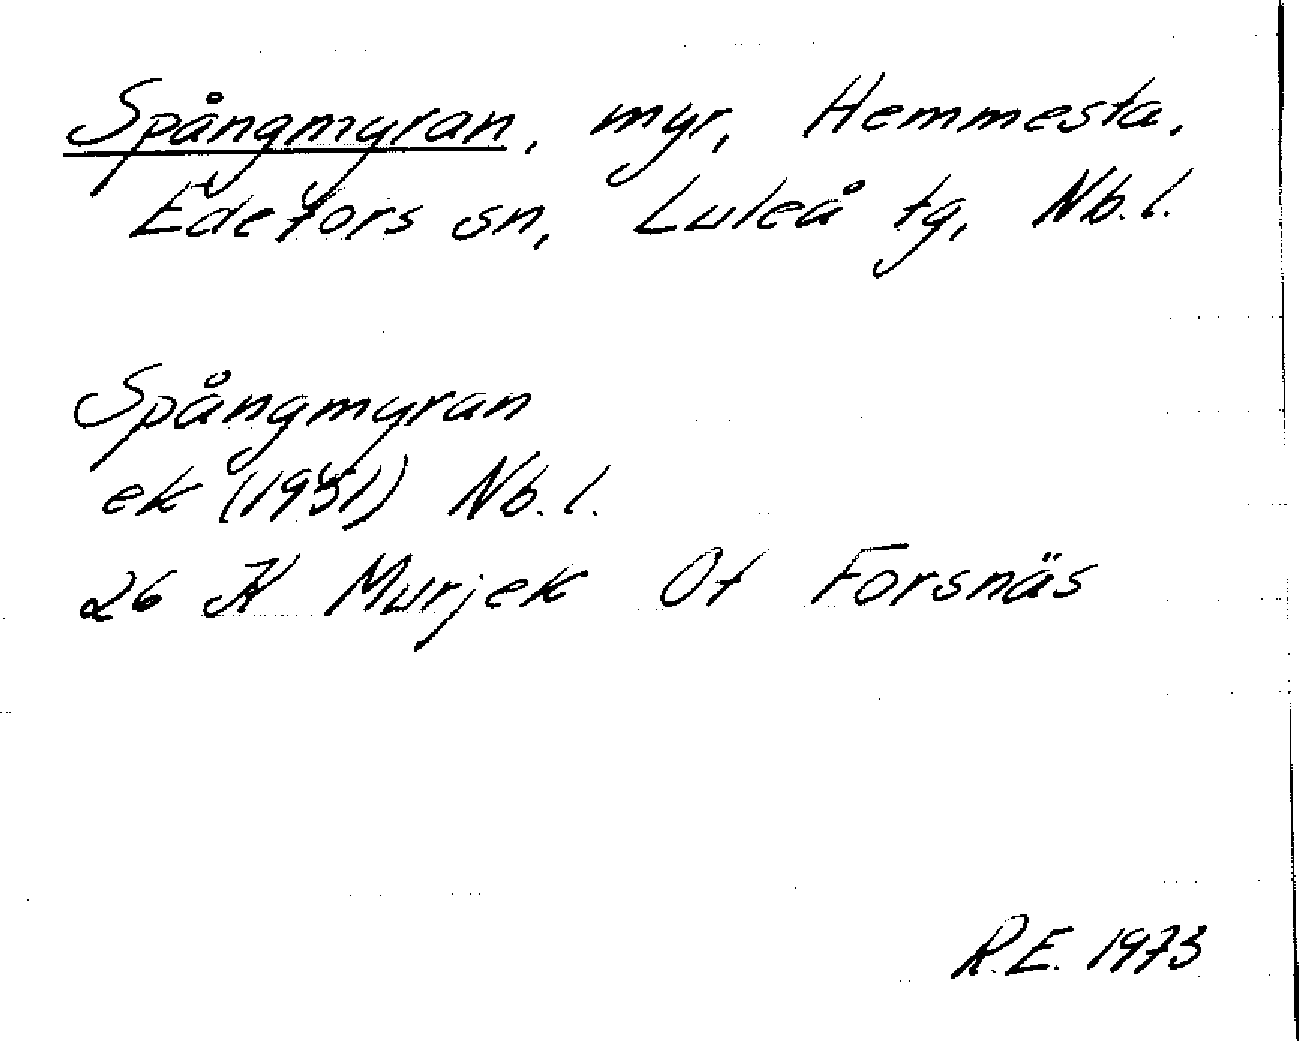 Spångmyran, myr, Hemmesta,
Edefors sn, Luleå tg, Nb.l.
Spångmyran
ek (1951) Nb. l.
26 K Murjek Of Forsnäs
R.E. 1973